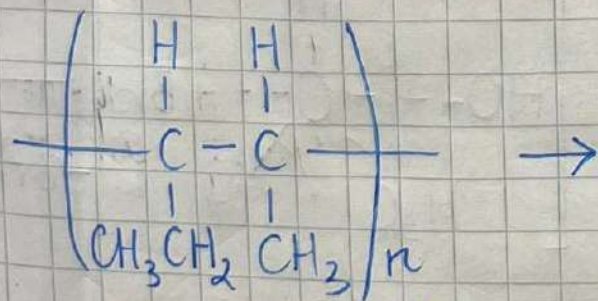 H H
C - C →
CH₃CH₂ CH₃ n